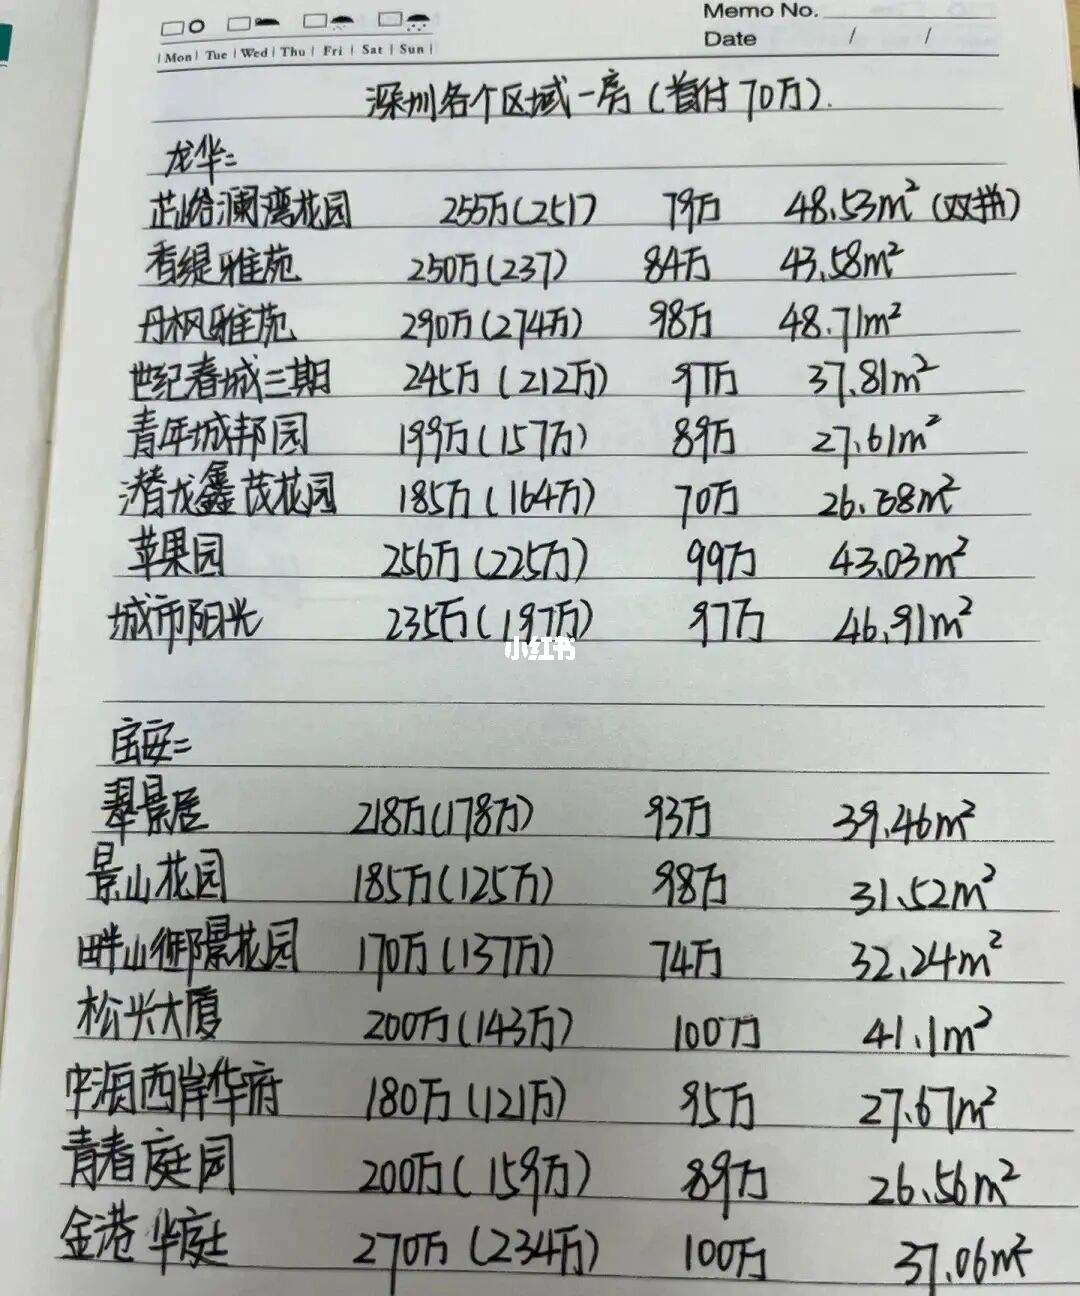 Memo No.
Mon Tue Wed Thu Fri Sat Sun
Date / /
深圳各个区域一房(首付70万).
龙华=
芷峪澜湾花园 255万(251) 79万 48.53m² (双拼)
香缇雅苑 250万(237) 84万 43.58m²
丹枫雅苑 290万(274万) 98万 48.71m²
世纪春城三期 245万(212万) 97万 37.81m²
青年城邦园 199万(157万) 89万 27.61m²
潜龙鑫茂花园 185万(164万) 70万 26.38m²
苹果园 256万(225万) 99万 43.03m²
城市阳光 235万(197万) 97万 46.91m²
小红书
宝安=
翠景居 218万(178万) 93万 39.46m²
景山花园 185万(125万) 98万 31.52m²
畔山御景花园 170万(137万) 74万 32.24m²
松兴大厦 200万(143万) 100万 41.1m²
中海西岸华府 180万(121万) 95万 27.67m²
青春庭园 200万(159万) 89万 26.56m²
金港华庭 270万(234万) 100万 37.06m²